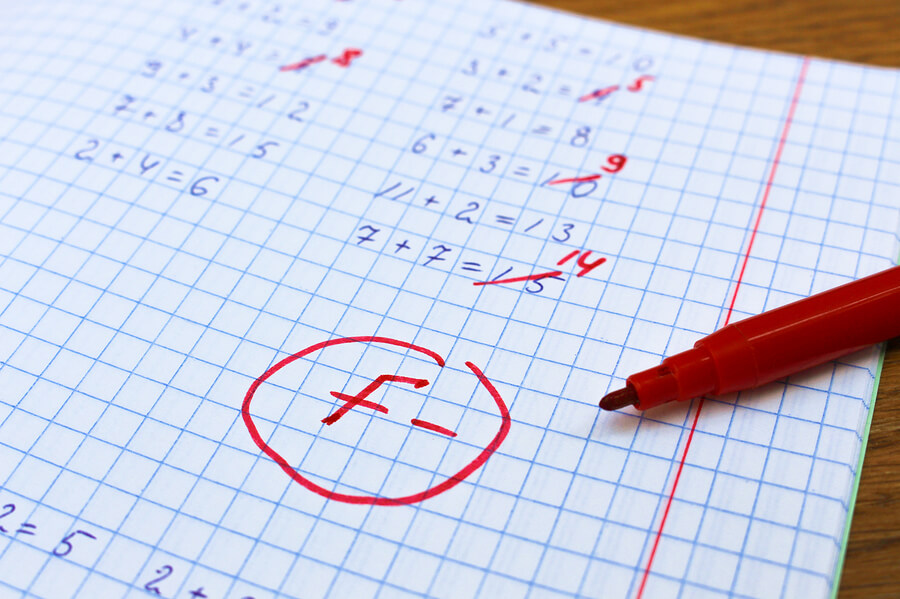 + 2 = 9
4 + 4 = 8
9 + 3 = 12
7 + 8 = 15
2 + 4 = 6
5 + 5 = 10
3 + 2 = 4 5
7 + 1 = 8
6 + 3 = 10 9
11 + 2 = 13
7 + 7 = 15 14
F-
2 = 5
2 +